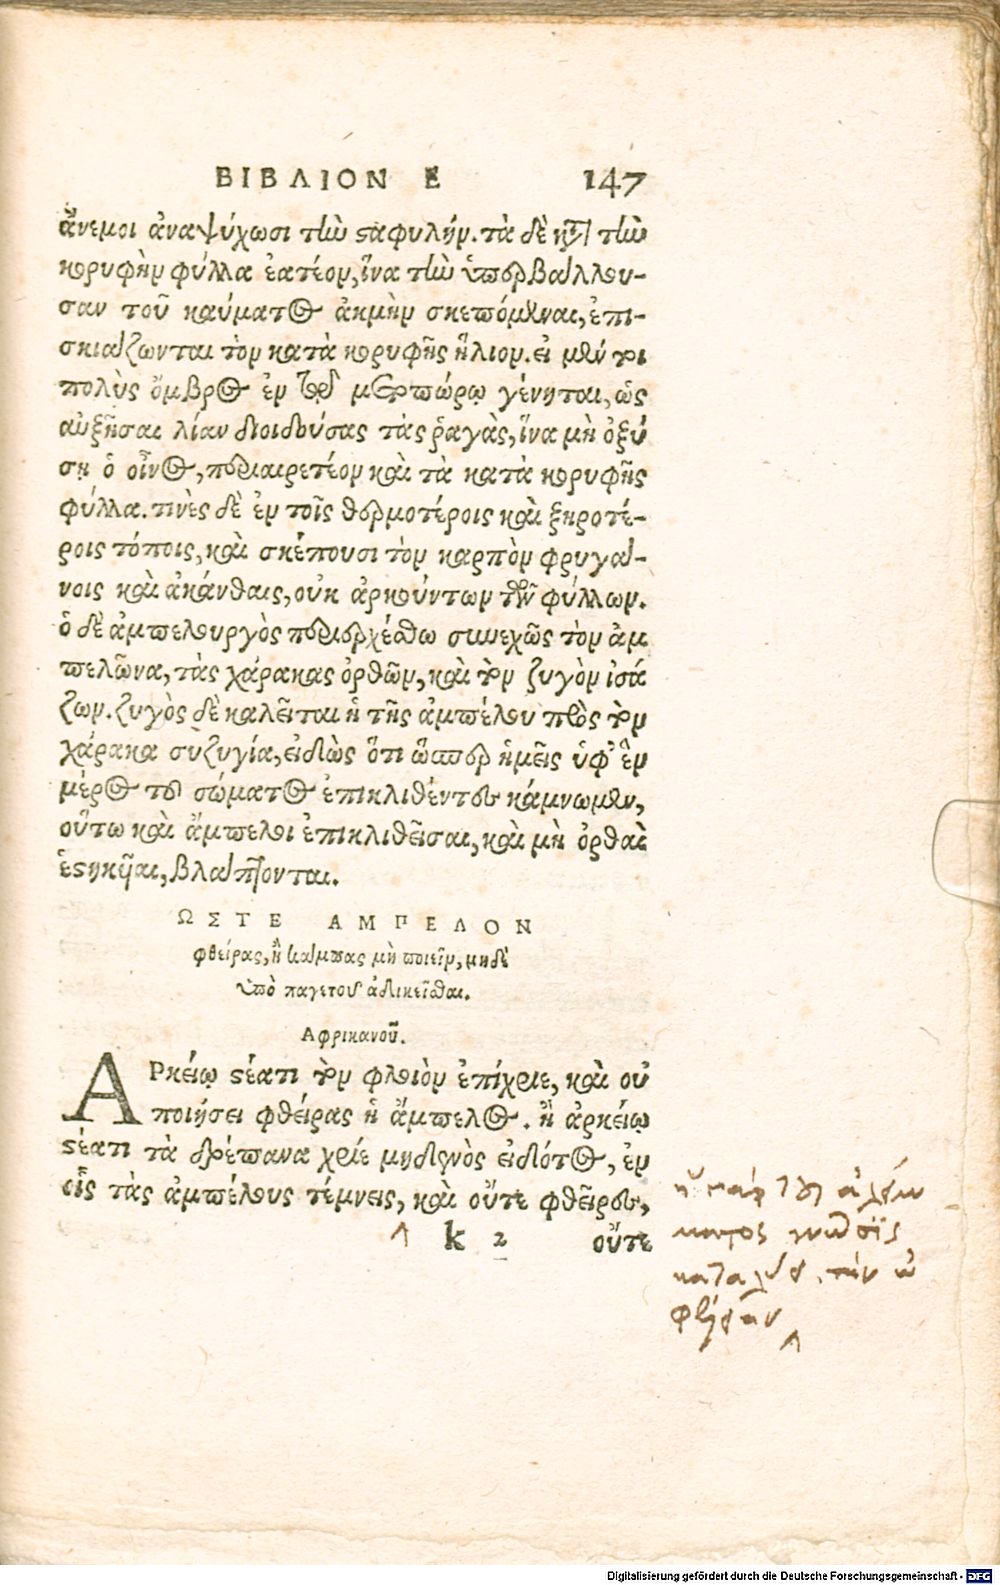 ΒΙΒΛΙΟΝ Ε 147
ἄνεμοι ἀναψύχωσι τὴν σταφυλήν. τὰ δὲ κατὰ τὴν
κορυφὴν φύλλα ἐατέον, ἵνα τὴν ὑπερβάλλου-
σαν τοῦ καύματος ἀκμὴν σκεπόμεναι, ἐπι-
σκιάζωνται τὸν κατὰ κορυφῆς ἥλιον. εἰ μέν τοι
πολὺς ὄμβρος ἐν τῷ μετοπώρῳ γένηται, ὡς
αὐξῆσαι λίαν διοιδούσας τὰς ῥαγὰς, ἵνα μὴ ὀξύ
σῃ ὁ οἶνος, περιαιρετέον καὶ τὰ κατὰ κορυφῆς
φύλλα. τινὲς δὲ ἐν τοῖς θερμοτέροις καὶ ξηροτέ-
ροις τόποις, καὶ σκέπουσι τὸν καρπὸν φρυγά-
νοις καὶ ἀκάνθαις, οὐκ ἀρκούντων τῶν φύλλων.
ὁ δὲ ἀμπελουργὸς περιερχέσθω συνεχῶς τὸν ἀμ
πελῶνα, τὰς χάρακας ὀρθῶν, καὶ τὸν ζυγὸν ἰσά
ζων. ζυγὸς δὲ καλεῖται ἡ τῆς ἀμπέλου πρὸς τὸν
χάρακα συζυγία, εἰδὼς ὅτι ὥσπερ ἡμεῖς ὑφ' ἓν
μέρος τοῦ σώματος ἐπικλιθέντες κάμνωμεν,
οὕτω καὶ ἄμπελοι ἐπικλιθεῖσαι, καὶ μὴ ὀρθαὶ
ἑστηκῆαι, βλάπτονται.
ΩΣΤΕ ΑΜΠΕΛΟΝ
φθείρας, ἢ κάμπας μὴ ποιεῖν, μηδὲ
ὑπὸ παγετοῦ ἀδικεῖσθαι.
Αφρικανοῦ.
ΑΡκείῳ στέατι τὸν φλοιὸν ἐπίχριε, καὶ οὐ
ποιήσει φθείρας ἡ ἄμπελος. ἢ ἀρκείῳ
στέατι τὰ δρέπανα χρίε μηδενὸς εἰδότος, ἐν
οἷς τὰς ἀμπέλους τέμνεις, καὶ οὔτε φθεῖρες,
k 2 οὔτε